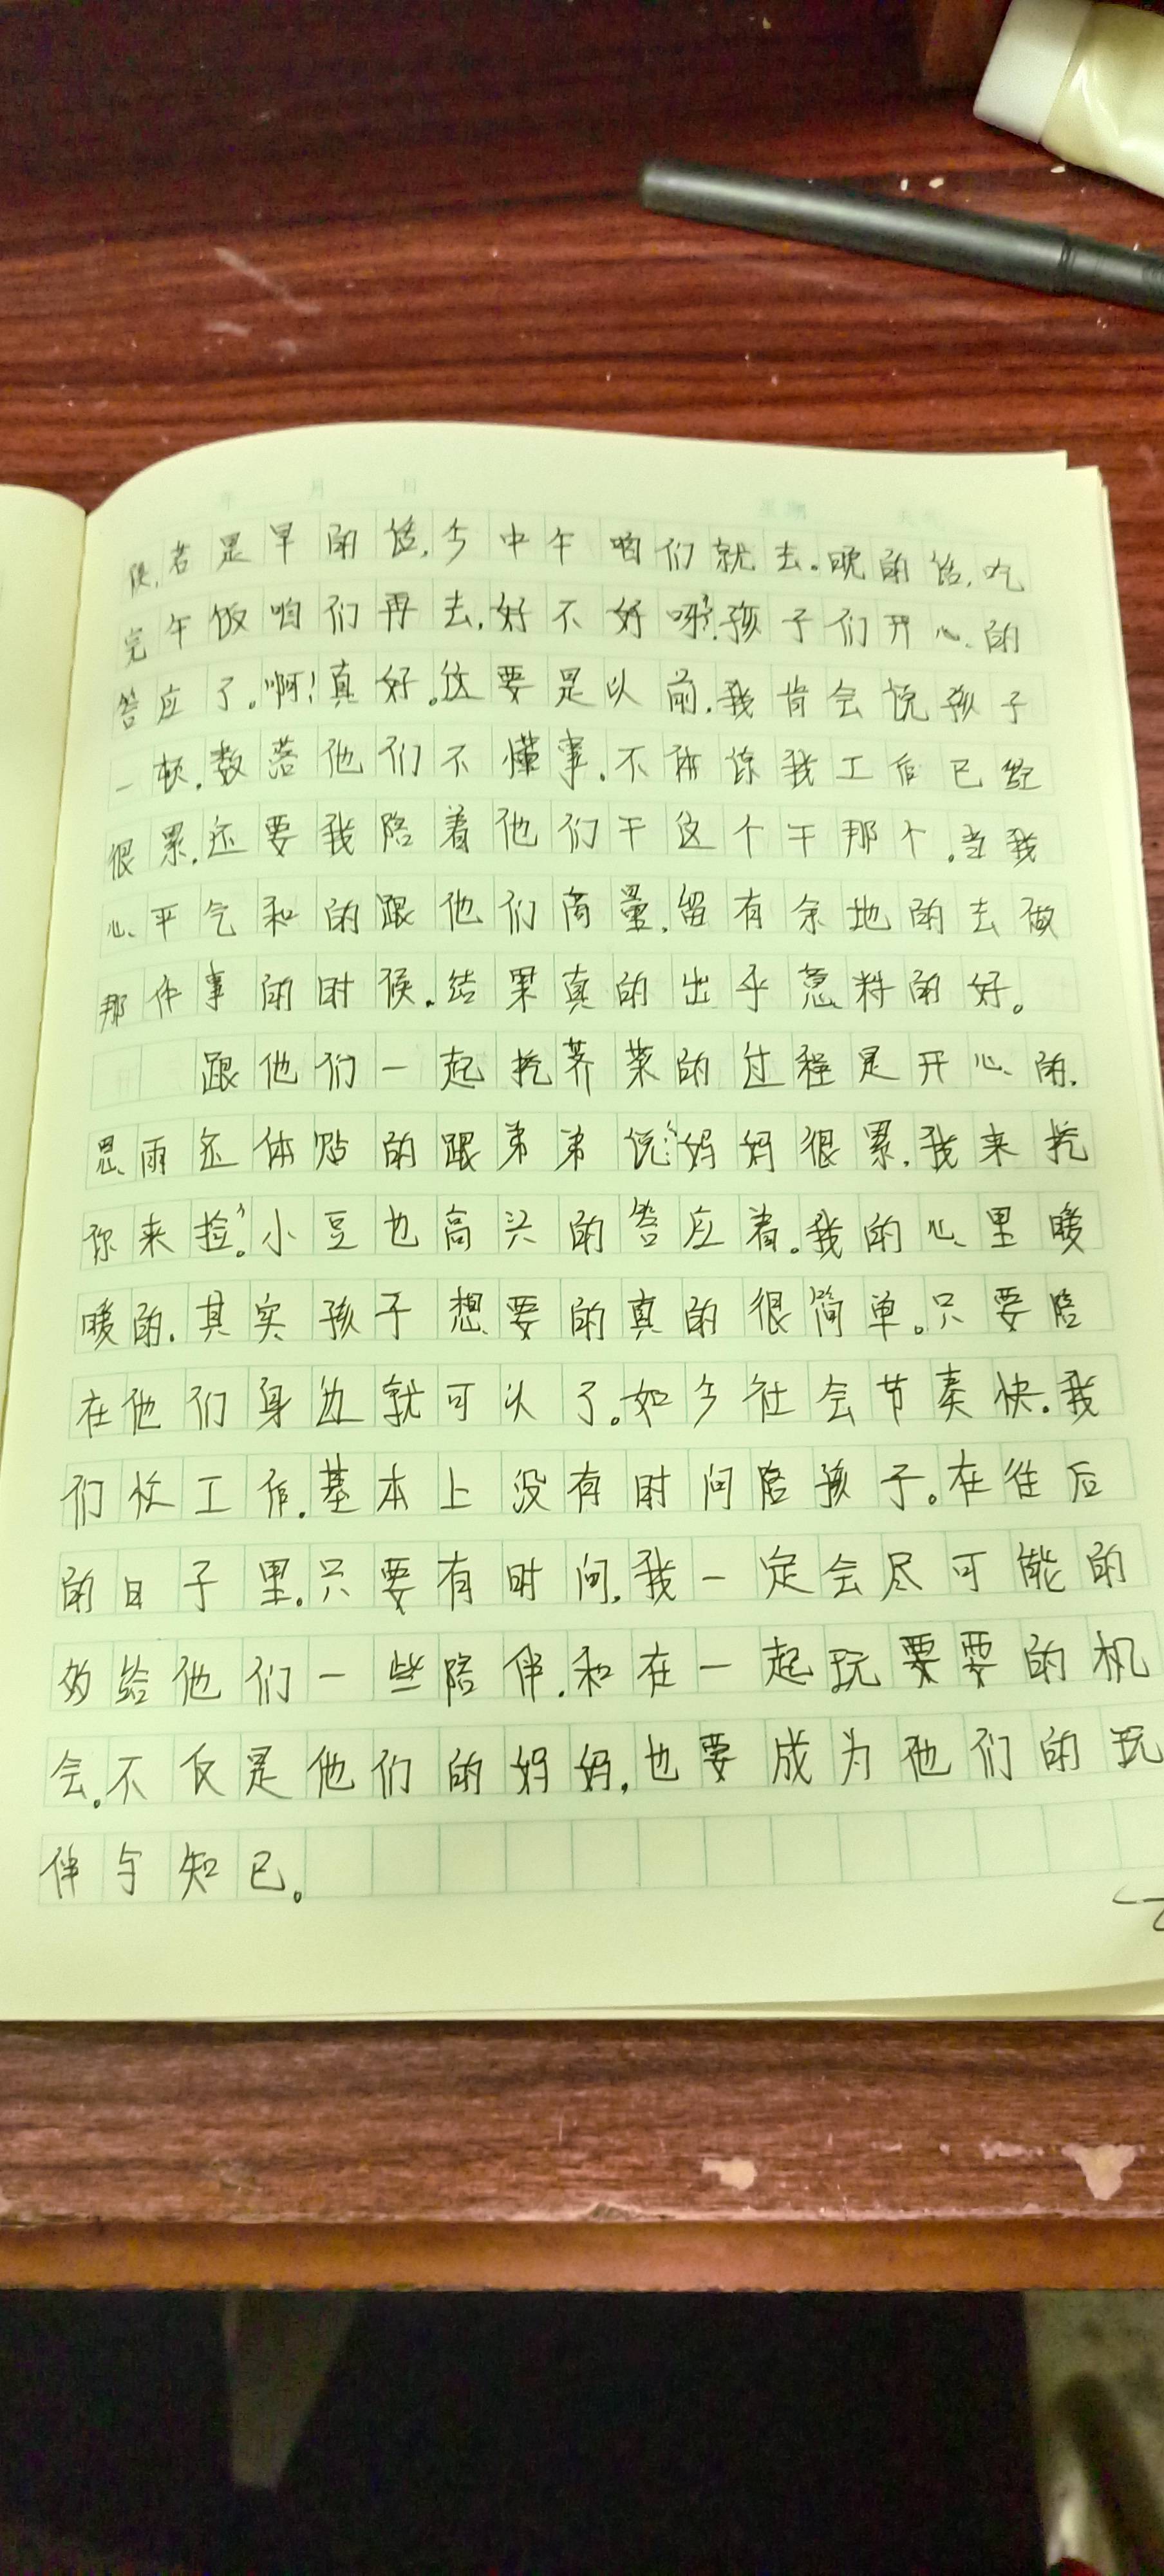 年 月 日 星期
候,若是早的话,今中午咱们就去。晚的话,吃
完午饭咱们再去,好不好呀?"孩子们开心的
答应了。啊!真好。这要是以前,我肯会说孩子
一顿,数落他们不懂事,不体谅我工作已经
很累,还要我陪着他们干这个干那个。当我
心平气和的跟他们商量,留有余地的去做
那件事的时候,结果真的出乎意料的好。
跟他们一起挖荠菜的过程是开心的,
思雨还体贴的跟弟弟说:"妈妈很累,我来挖
你来捡。"小豆也高兴的答应着。我的心里暖
暖的,其实孩子想要的真的很简单。只要陪
在他们身边就可以了。如今社会节奏快,我
们忙工作,基本上没有时间陪孩子。在往后
的日子里,只要有时间,我一定会尽可能的
给他们一些陪伴,和在一起玩耍耍的机
会。不仅是他们的妈妈,也要成为他们的玩
伴与知己。